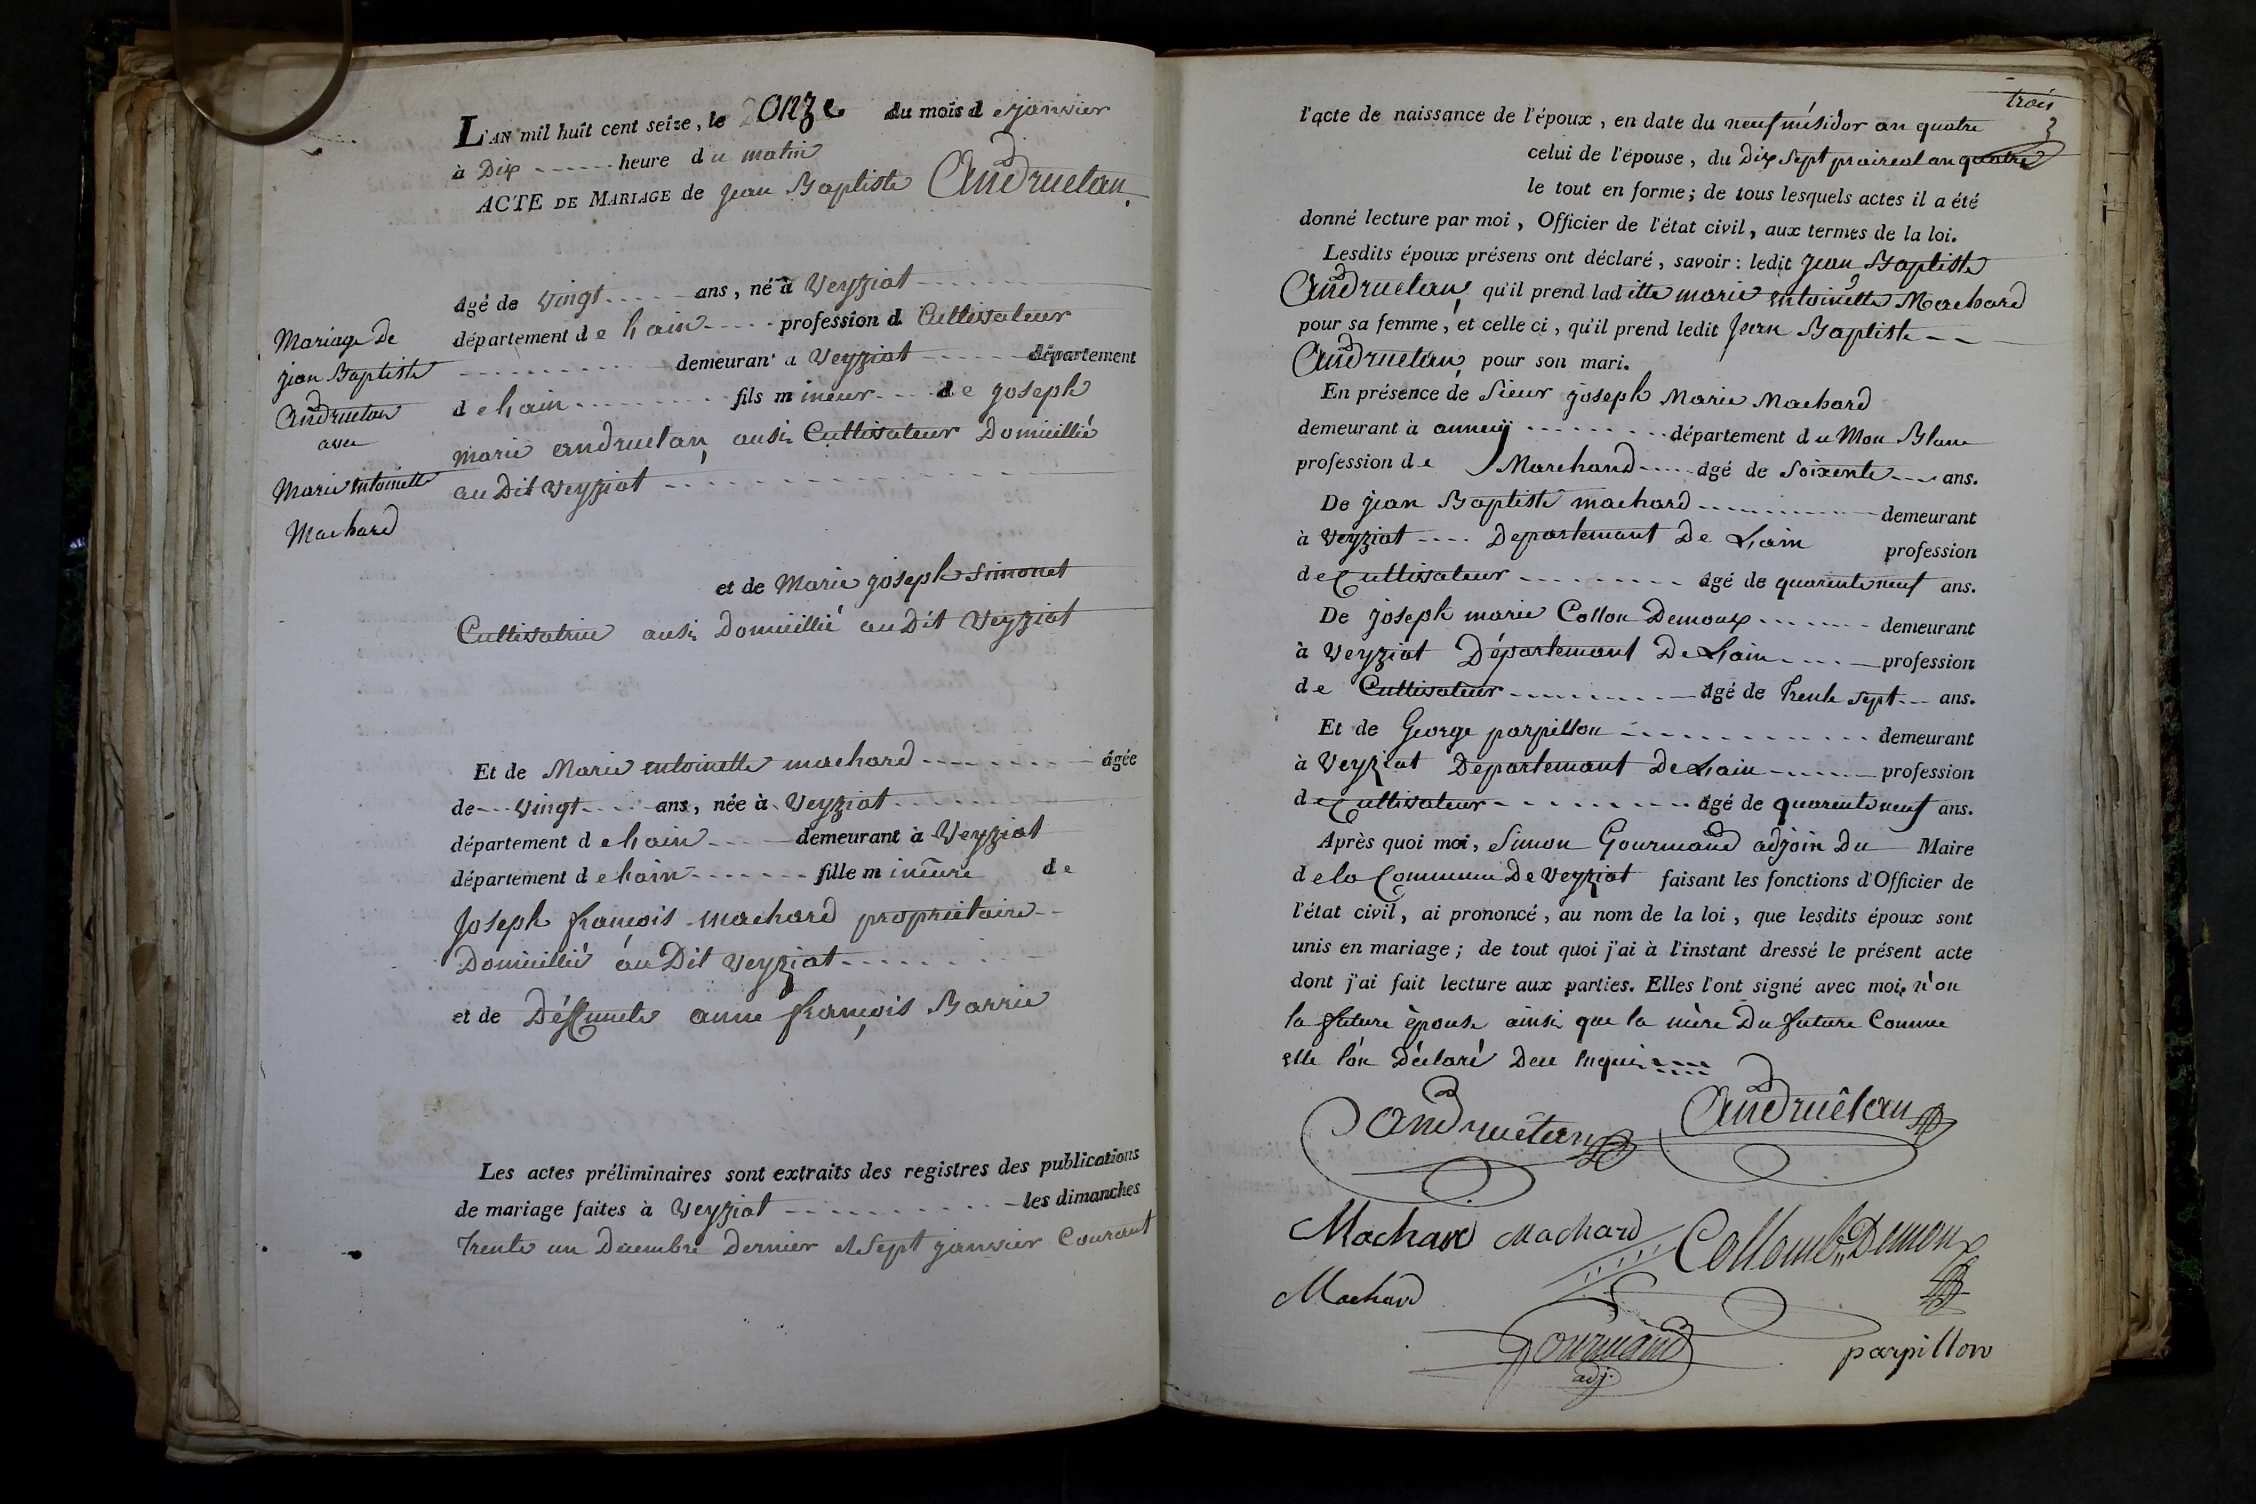 L'AN mil huit cent seize, le onze du mois de janvier
à Dix heure du matin
ACTE DE MARIAGE de jean Baptiste Andruetan
Mariage De
jean Baptiste
Andruetan
avec
Marie entoinette
Machard
âgé de vingt ans, né à Veyziat
département de Lain profession d Cultivateur
demeurant a Veyziat département
de Lain fils mineur de joseph
marie andruetan, ausi Cultivateur Domicillié
au Dit Veyziat
et de Marie joseph Simonet
Cultivatrice ausi Domicillié au Dit Veyziat
Et de Marie entoinette machard âgée
de vingt ans, née à Veyziat
département de Lain demeurant à Veyziat
département de Lain fille mineure de
Joseph françois machard propriétaire
Domicillié au Dit Veyziat
et de Déffunte anne françois Barrie
Les actes préliminaires sont extraits des registres des publications
de mariage faites à Veyziat les dimanches
Trente un Decembre Dernier et Sept janvier Courant
trois
3
l'acte de naissance de l'époux, en date du neuf mésidor an quatre
celui de l'épouse, du Dix Sept praireal an quatre
le tout en forme; de tous lesquels actes il a été
donné lecture par moi, Officier de l'état civil, aux termes de la loi.
Lesdits époux présens ont déclaré, savoir: ledit Jean Baptiste
Andruetan, qu'il prend ladite marie entoinette Machard
pour sa femme, et celle ci, qu'il prend ledit Jean Baptiste
Andruetan, pour son mari.
En présence de Sieur joseph Marie Machard
demeurant à annecy département du Mon Blanc
profession de Marchand âgé de Soixente ans.
De jean Baptiste machard demeurant
à Veyziat Departemant De Lain profession
de Cultivateur âgé de quarente neuf ans.
De joseph marie Collon Demoux demeurant
à Veyziat Départemant De Lain profession
de Cultivateur âgé de Trente sept ans.
Et de George parpillon demeurant
à Veyziat Departemant De Lain profession
de Cultivateur âgé de quarente neuf ans.
Après quoi moi, Simon Gourmand adjoin Du Maire
de la Commune De Veyziat faisant les fonctions d'Officier de
l'état civil, ai prononcé, au nom de la loi, que lesdits époux sont
unis en mariage; de tout quoi j'ai à l'instant dressé le présent acte
dont j'ai fait lecture aux parties. Elles l'ont signé avec moi, n'on
la future èpouse ainsi que la mère Du future Comme
elle l'on Déclaré Deu
Andruetan Andruêtan
Machard Machard Collomb Demoux
Machard
Gourmand
adj.
parpillon